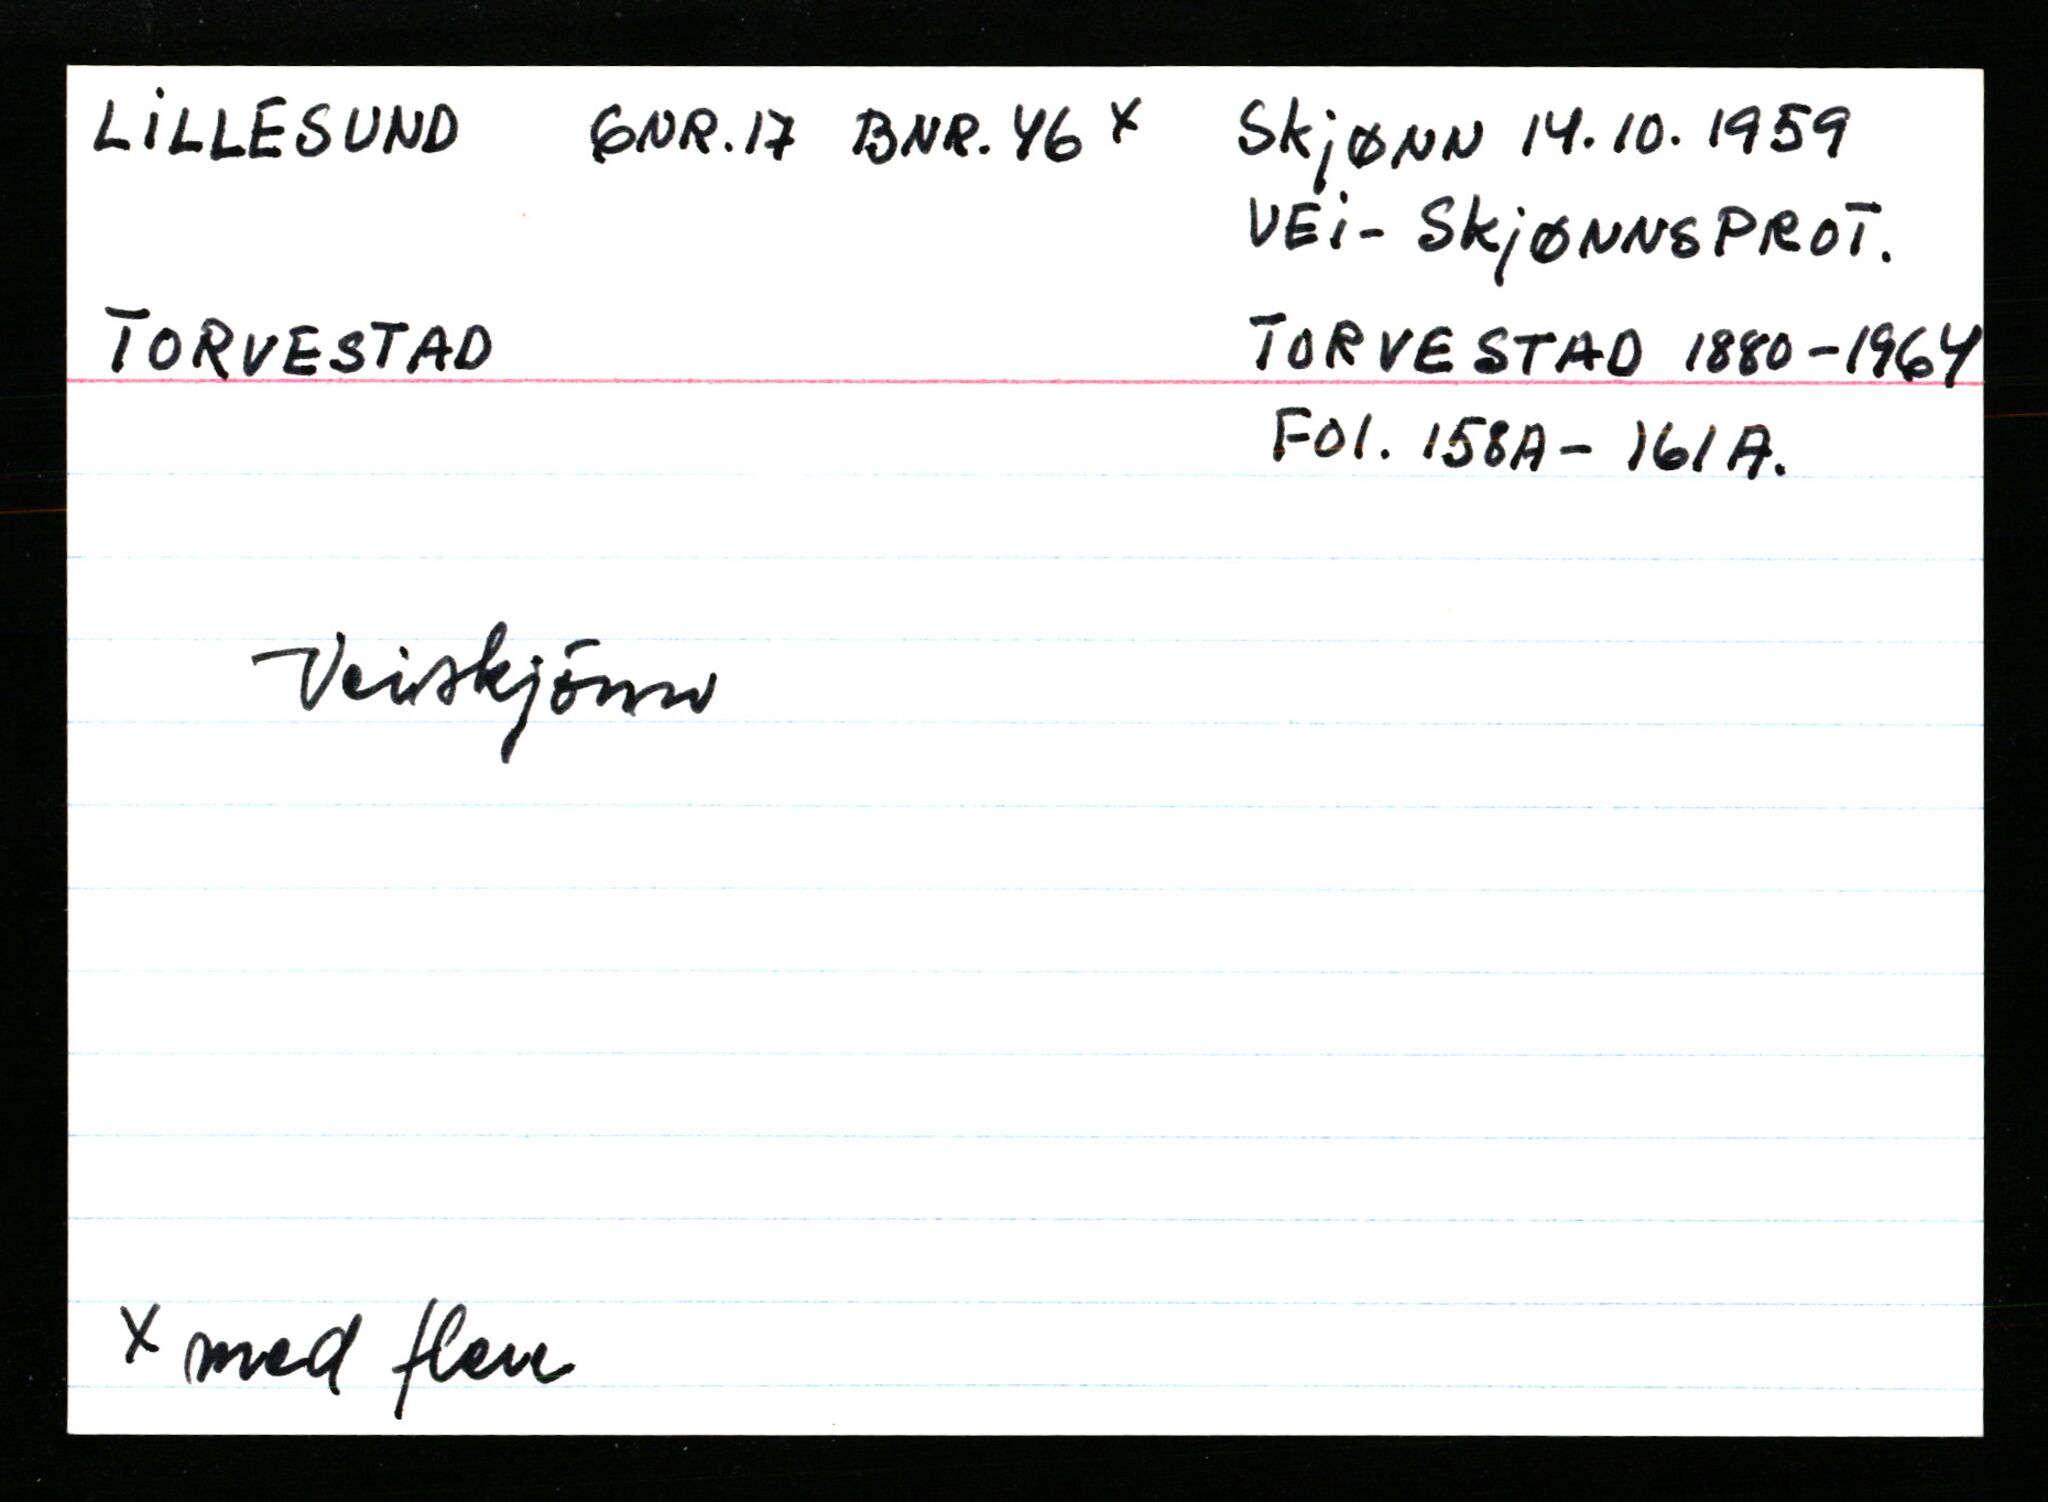 LILLESUND GNR.17 BNR.46 x Skjønn 14.10.1959
VEI-SkjønnsPROT.
TORVESTAD TORVESTAD 1880-1964
Fol. 158A-161A.
Veiskjönn
x med flere